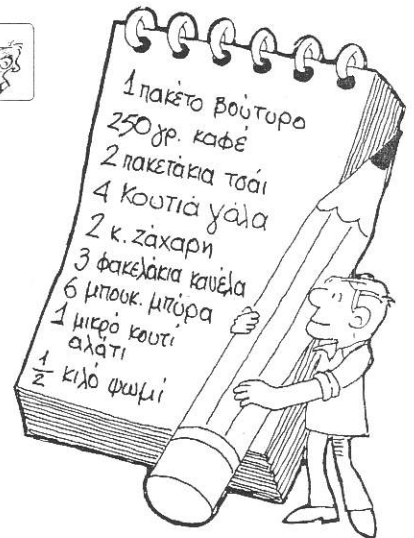 1 πακέτο βούτυρο
250 γρ. καφέ
2 πακετάκια τσάι
4 κουτιά γάλα
2 κ. ζάχαρη
3 φακελάκια κανέλα
6 μπουκ. μπύρα
1 μικρό κουτί
αλάτι
1/2 κιλό ψωμί